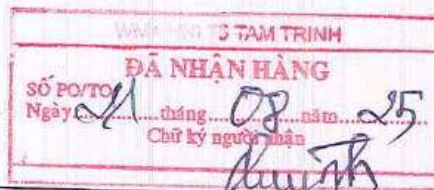 WM+ HNI TS TAM TRINH
ĐÃ NHẬN HÀNG
SỐ PO/TO
Ngày 21 tháng 08 năm 25
Chữ ký người nhận